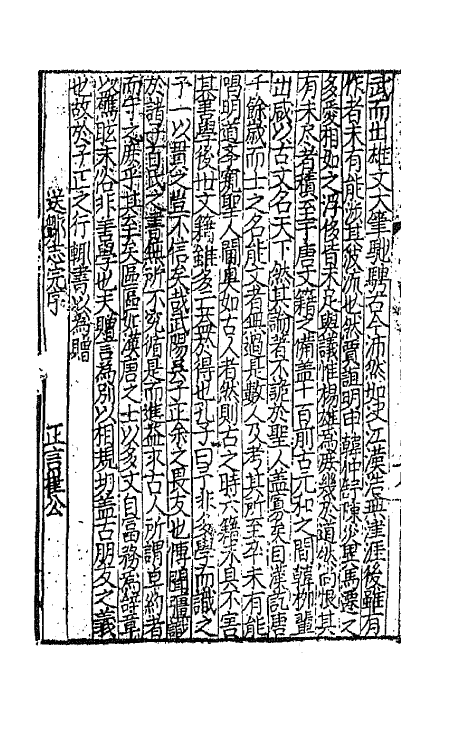 武而出雄文大筆馳騁古今沛然如決江漢浩無津涯後雖有
作者未有能涉其波流也然賈誼明申韓仲舒陳災異馬遷之
多愛相如之浮侈皆未足與議惟楊雄爲庶幾於道然尚恨其
有未盡者積至于唐文籍之備蓋十百前古元和之間韓柳輩
出咸以古文名天下然其論著不詭於聖人蓋寡矣自漢訖唐
千餘歲而士之名能文者無過是數人及考其所至卒未有能
唱明道學窺聖人閫奧如古人者然則古之時六籍未具不害
其善學後世文籍雖多無益於得也孔子曰予非多學而識之
予一以貫之豈不信矣哉武陽吳子正余之畏友也博聞彊識
於諸子百氏之書無所不究循是而進益求古人所謂卓約者
而守之庶乎其至矣區區如漢唐之士以多文自富務爲辭章
以譙眩末俗非善學也夫贈言爲別以相規切蓋古朋友之義
也故於子正之行輒書以爲贈
送鄒志完序 正言鄒公